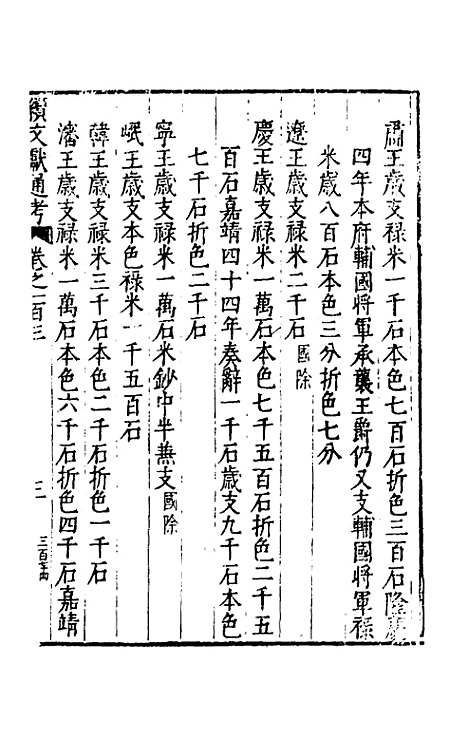 肅王歲支祿米一千石本色七百石折色三百石隆慶
四年本府輔國將軍承襲王爵仍又支輔國將軍祿
米歲八百石本色三分折色七分
遼王歲支祿米二千石國除
慶王歲支祿米一萬石本色七千五百石折色二千五
百石嘉靖四十四年奏辭一千石歲支九千石本色
七千石折色二千石
寧王歲支祿米一萬石米鈔中半兼支國除
岷王歲支本色祿米一千五百石
韓王歲支祿米三千石本色二千石折色一千石
瀋王歲支祿米一萬石本色六千石折色四千石嘉靖
續文獻通考 卷之一百三